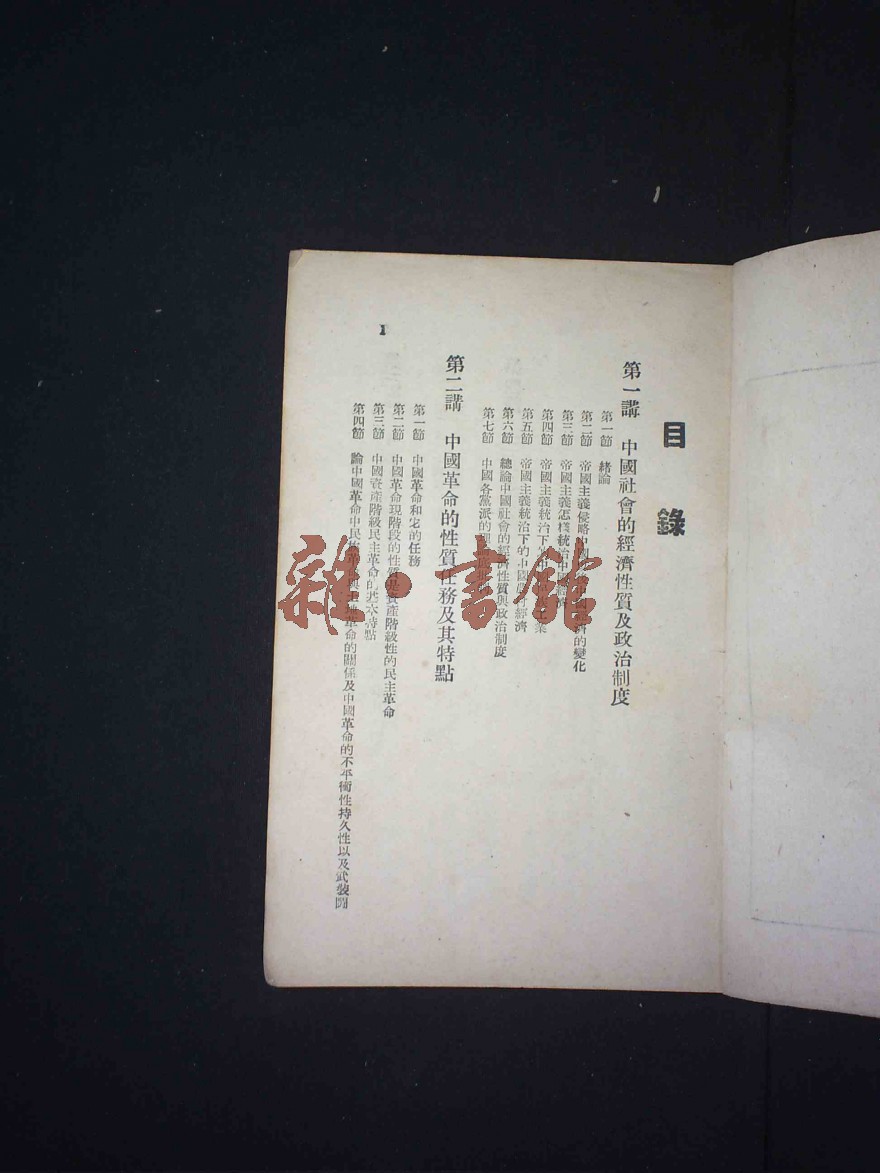 目錄
第一講 中國社會的經濟性質及政治制度
第一節 緒論
第二節 帝國主義侵略中國 的變化
第三節 帝國主義怎樣統治中 經濟
第四節 帝國主義統治下的中 業
第五節 帝國主義統治下的中國 經濟
第六節 總論中國社會的經濟性質與政治制度
第七節 中國各黨派的
第二講 中國革命的性質任務及其特點
第一節 中國革命和它的任務
第二節 中國革命現階段的性質是資產階級性的民主革命
第三節 中國資產階級民主革命的基本特點
第四節 論中國革命中民族革 與土地革命的關係及中國革命的不平衡性持久性以及武裝鬪
1
雜·書館